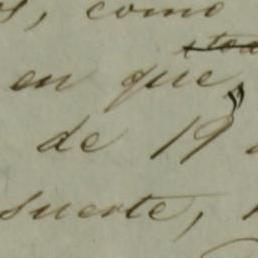 como
en que
de 19
suerte,